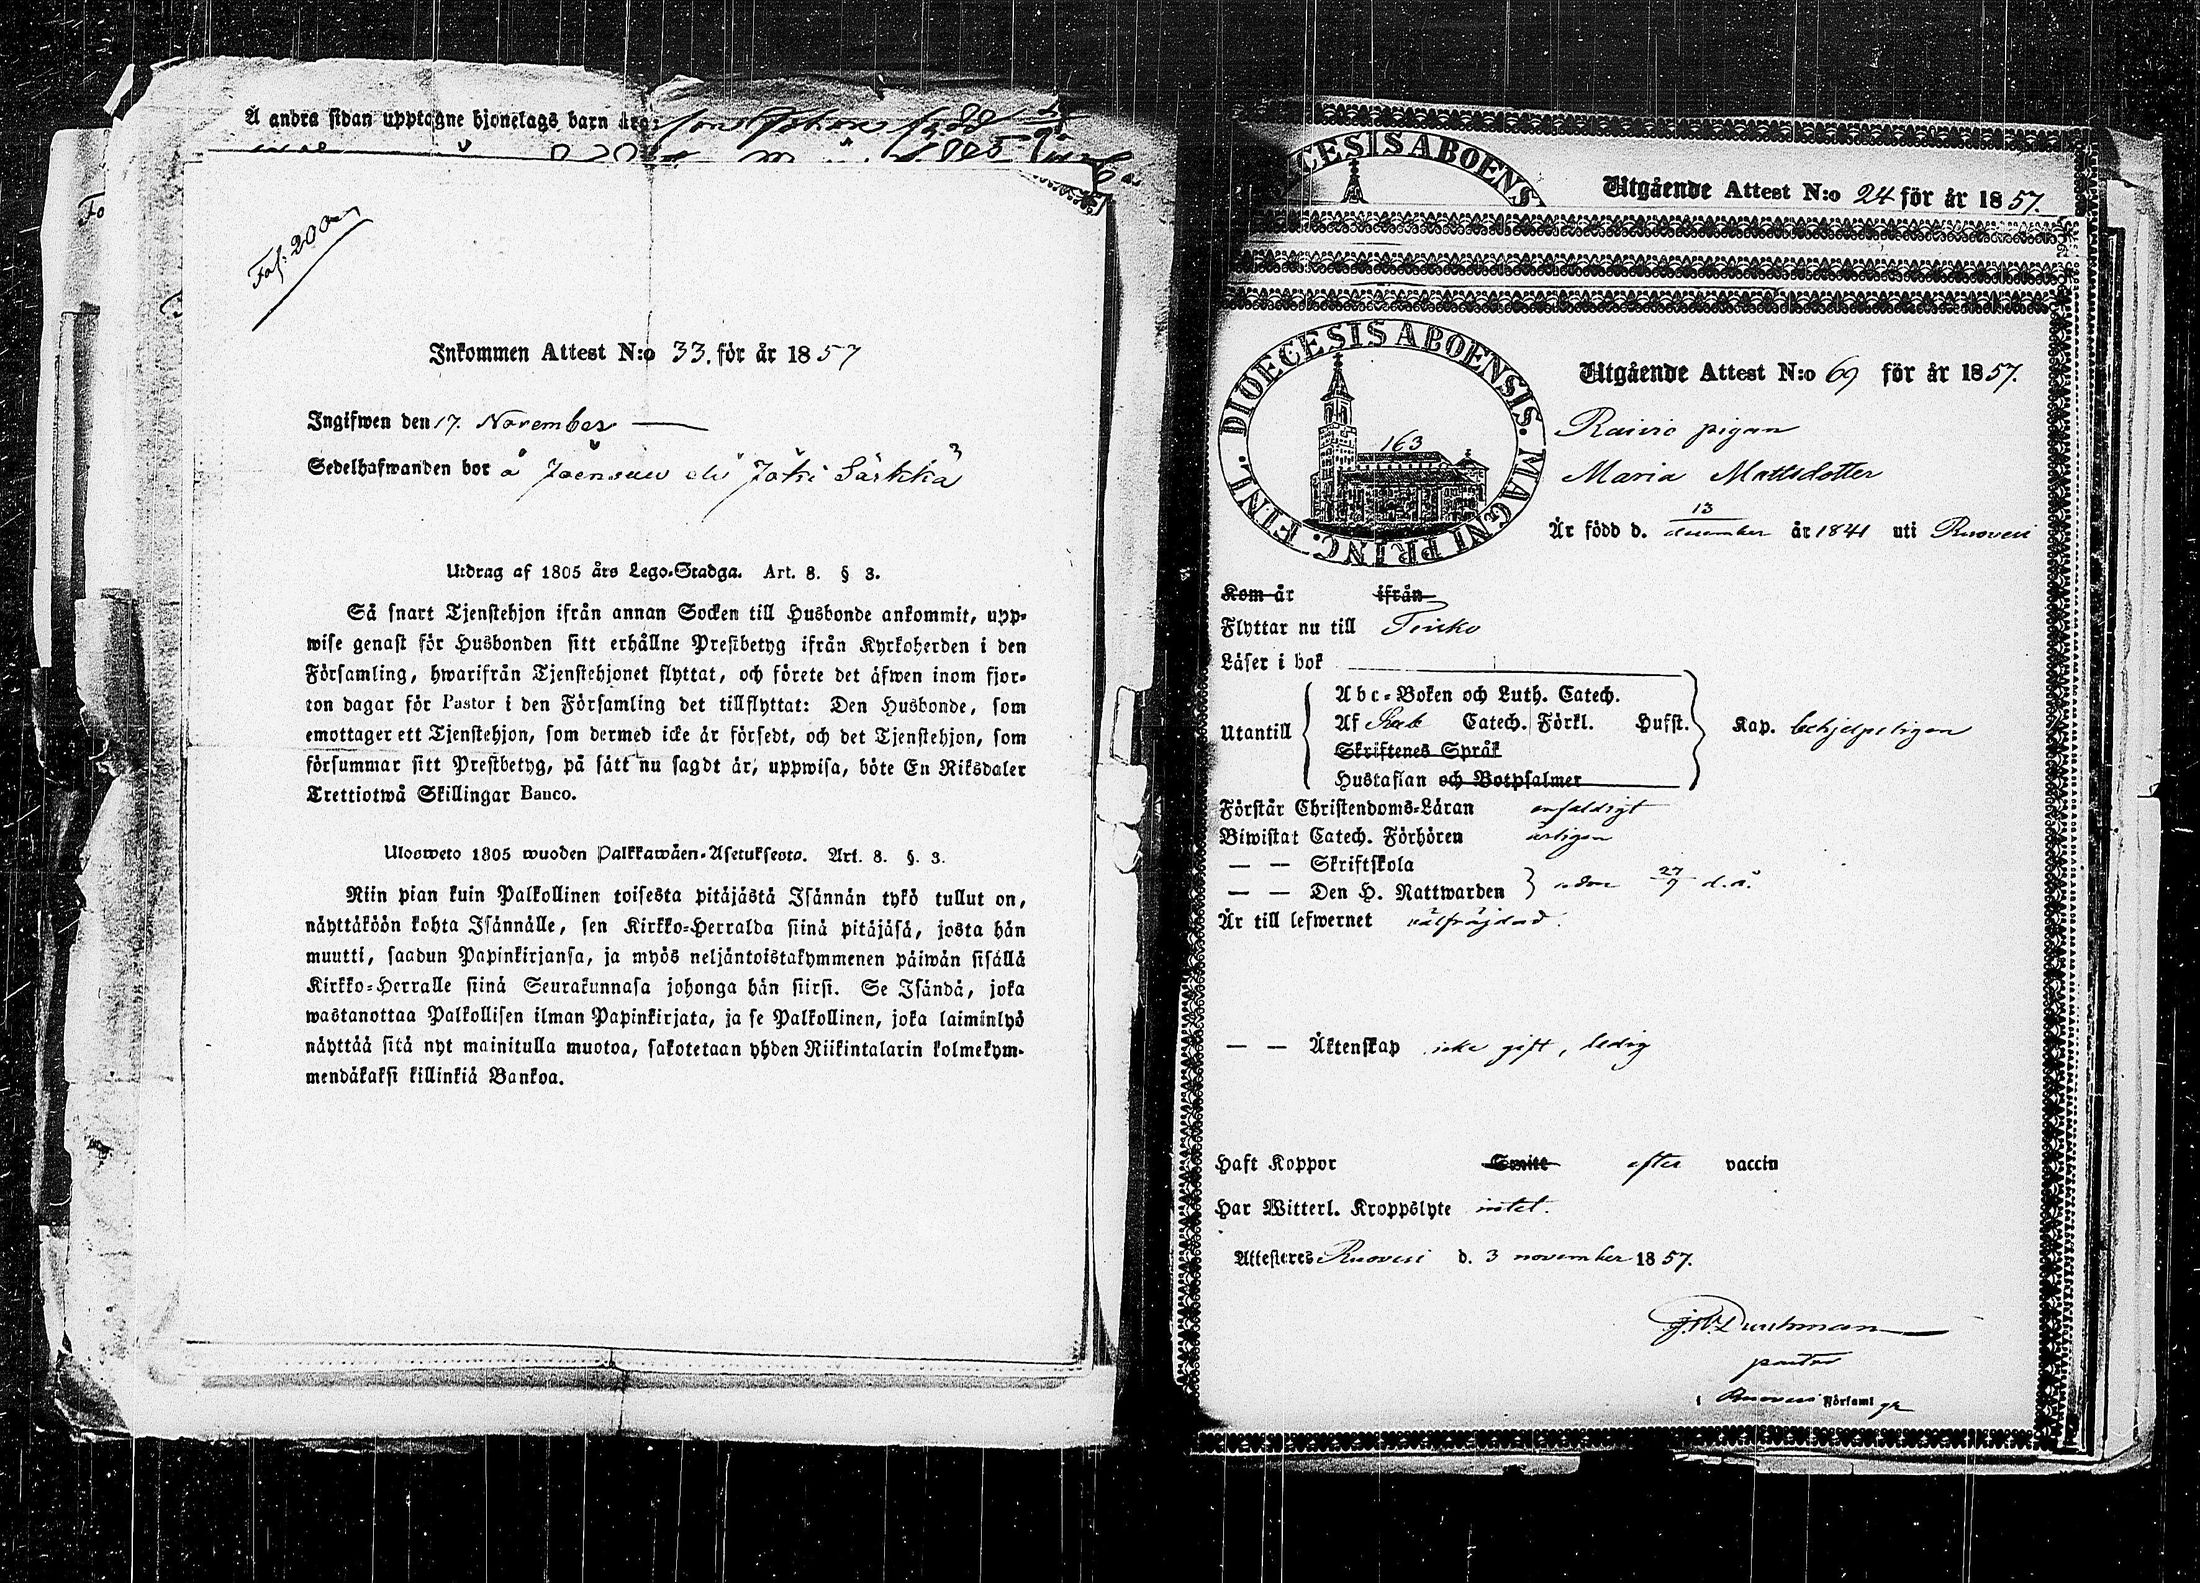 Å andra sidan upptagne hjonelags barn äro: son Johan född
Fol. 200
Inkommen Attest N:o 33. för år 1857
Ingifwen den 17. November
Sedelhafwanden bor å Joensuu eli Joki Särkkä
Utdrag af 1805 års Lego-Stadga. Art. 8. § 3.
Så snart Tjenstehjon ifrån annan Socken till Husbonde ankommit, upp-
wise genast för Husbonden sitt erhållne Prestbetyg ifrån Kyrkoherden i den
Församling, hwarifrån Tjenstehjonet flyttat, och förete det äfwen inom fjor-
ton dagar för Pastor i den Församling det tillflyttat: Den Husbonde, som
emottager ett Tjenstehjon, som dermed icke är försedt, och det Tjenstehjon, som
försummar sitt Prestbetyg, på sätt nu sagdt är, uppwisa, böte En Riksdaler
Trettiotwå Skillingar Banco.
Ulosweto 1805 wuoden Palkkawäen-Asetuksesta. Art. 8. §. 3.
Niin pian kuin Palkollinen toisesta pitäjästä Isännän tykö tullut on,
näyttäköön kohta Isännälle, sen Kirkko-Herralda siinä pitäjäsä, josta hän
muutti, saadun Papinkirjansa, ja myös neljäntoistakymmenen päiwän sisällä
Kirkko-Herralle siinä Seurakunnasa johonga hän siirsi. Se Isändä, joka
wastanottaa Palkollisen ilman Papinkirjata, ja se Palkollinen, joka laiminlyö
näyttää sitä nyt mainitulla muotoa, sakotetaan yhden Riikintalarin kolmekym-
mendäkaksi killinkiä Bankoa.
CESIS ABOENS
Utgående Attest N:o 24 för år 1857.
DIOECESIS ABOENSIS. MAGNI PRINC. FINL.
163
Utgående Attest N:o 69 för år 1857.
pigan
Maria Mattsdotter
Är född d. 13 december år 1841 uti Ruovesi
Kom år ifrån
Flyttar nu till Teisko
Läser i bok
Utantill
Abc-Boken och Luth. Catech.
Af Catech. Förkl. Husst. Kap. behjelpeligen
Skriftenes Språk
Hustaflan och Botpsalmer
Förstår Christendoms-Läran enfaldigt
Biwistat Catech. Förhören årligen
— — Skriftskola
— — Den H. Nattwarden } sedan 27/9 d.å.
Är till lefwernet välfräjdad.
— — Äktenskap icke gift, ledig
Haft Koppor Smitt efter vaccin
Har Witterl. Kroppslyte intet.
Attesteres Ruovesi d. 3 november 1857.
pastor
i Ruovesi Församl gr